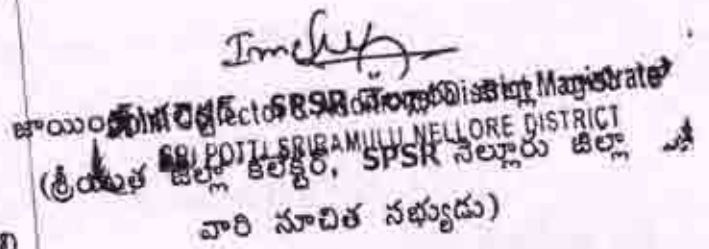 జాయింట్ కలెక్టర్, SPSR నెల్లూరు జిల్లా
Joint Collector & Additional District Magistrate
SRI POTTI SRIRAMULU NELLORE DISTRICT
(శ్రీయుత జిల్లా కలెక్టర్, SPSR నెల్లూరు జిల్లా
వారి సూచిత సభ్యుడు)